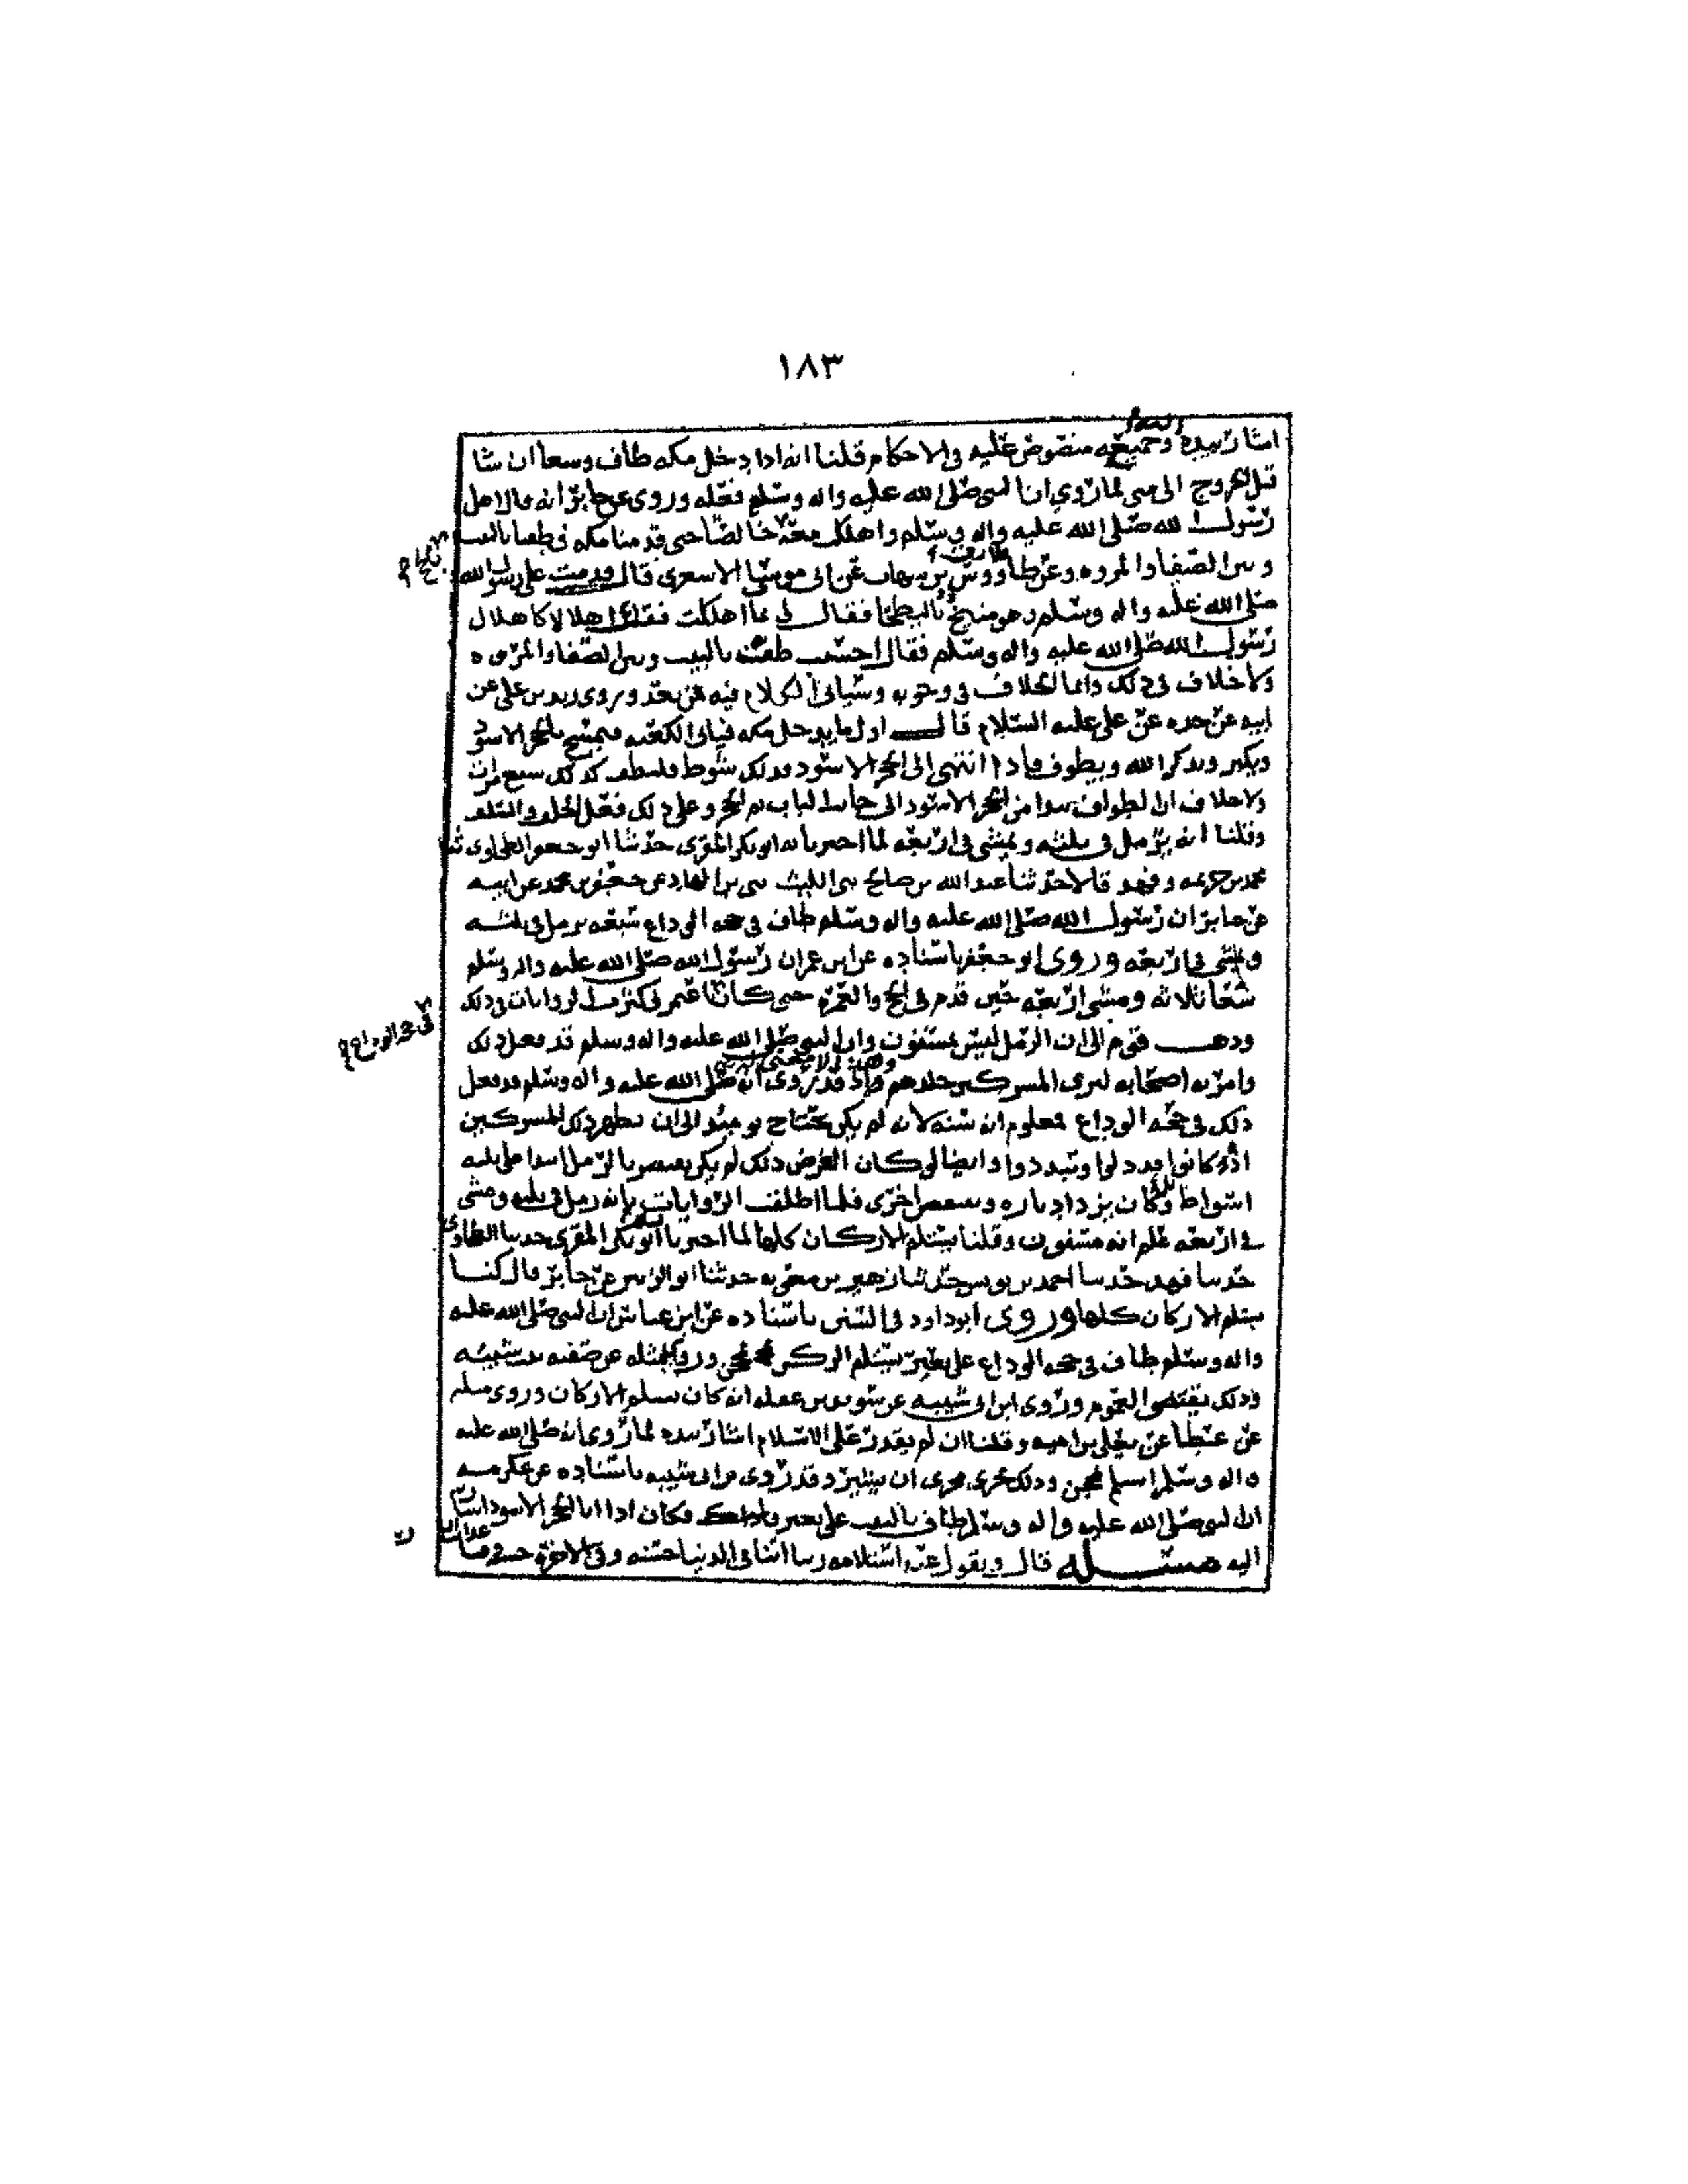 ١٨٣
اشار بيده وجميعه منصوص عليه في الاحكام قلنا انه اذا دخل مكه طاف وسعا ان شا
قبل الخروج الى منى لما روي ان النبي صلى الله عليه واله وسلم فعله وروى عن جابر انه قال اهل
رسول الله صلى الله عليه واله وسلم واهللنا معه خالصا حتى قدمنا مكه فطفنا بالبيت
وبين الصفا والمروه وعن طاووس بن شهاب عن ابي موسى الاشعري قال قدمت على رسول الله
صلى الله عليه واله وسلم وهو منيخ بالبطحا فقال لي بما اهللت فقلت اهلالا كاهلال
رسول الله صلى الله عليه واله وسلم فقال احسنت طف بالبيت وبين الصفا والمروه
ولا خلاف في ذلك وانما الخلاف في وجوبه وسياتي الكلام فيه من بعد وروى زيد بن علي عن
ابيه عن جده عن علي عليه السلام قال اول ما يدخل مكه فياتي الكعبه فيمسح بالحجر الاسود
ويكبر ويذكر الله ويطوف فاذا انتهى الى الحجر الاسود فذلك شوط فليطف كذلك سبع مرات
ولا خلاف ان الطواف يبدا من الحجر الاسود الى جانب الباب ثم الحجر وعلى ذلك فعل الخلف والسلف
وقلنا انه يرمل في ثلثه ويمشي في اربعه لما اخبرنا به ابو بكر المقري حدثنا ابو جعفر الطحاوي ثنا
محمد بن خزيمه وفهد قالا حدثنا عبدالله بن صالح ثنى الليث ثنى بن الهاد عن جعفر بن محمد عن ابيه
عن جابر ان رسول الله صلى الله عليه واله وسلم طاف في حجه الوداع سبعه يرمل في ثلثه
ويمشي في اربعه وروى ابو جعفر باسناده عن ابن عمر ان رسول الله صلى الله عليه واله وسلم
سعا ثلاثه ومشى اربعه حين قدم في الحج والعمره حين كان اعتمر في كثير من الروايات في ذلك
وذهب قوم الى ان الرمل ليس بمسنون وان النبي صلى الله عليه واله وسلم قد فعل ذلك
وامر به اصحابه ليرى المشركين جلدهم واذ قد روى انه صلى الله عليه واله وسلم قد فعل
ذلك في حجه الوداع فمعلوم انه سنه لانه لم يكن يحتاج يومئذ الى ان يظهر ذلك للمشركين
اذ كانوا قد ذلوا وتبددوا وايضا لو كان الغرض ذلك لم يكن يقتصر بالرمل ابدا على ثلثه
اشواط وكان يزداد تاره وينقص اخرى فلما اطلقت الروايات بانه رمل في ثلثه ومشى
في اربعه علم انه مسنون وقلنا يستلم الاركان كلها لما اخبرنا به ابو بكر المقري حدثنا الطحاوي
حدثنا فهد حدثنا احمد بن يونس حدثنا زهير بن معويه حدثنا ابو الزبير عن جابر قال كنا
نستلم الاركان كلها وروى ابو داود في السنن باسناده عن ابن عباس ان النبي صلى الله عليه
واله وسلم طاف في حجه الوداع على بعير يستلم الركن بمحجن وروى مثله عن صفيه بنت شيبه
وذلك يقتضي العموم وروى ابن ابي شيبه عن سويد بن غفله انه كان يستلم الاركان وروى مثله
عن عطا عن يعلى بن اميه وقلنا ان لم يقدر على الاستلام اشار بيده لما روى انه صلى الله عليه
واله وسلم استلم بمحجن وذلك يجري مجرى ان يشير وقد روى بن ابي شيبه باسناده عن عكرمه
ان النبي صلى الله عليه واله وسلم طاف بالبيت على بعير فكان اذا اتا الحجر الاسود اشار
اليه مسئله قال ويقول عند استلامه ربنا اتنا في الدنيا حسنه وفي الاخره حسنه وقنا
عذاب النار
بالحج
في حجه الوداع